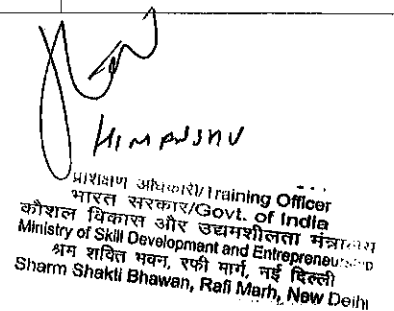 HIMANSHU
प्रशिक्षण अधिकारी/Training Officer
भारत सरकार/Govt. of India
कौशल विकास और उद्यमशीलता मंत्रालय
Ministry of Skill Development and Entrepreneurship
श्रम शक्ति भवन, रफी मार्ग, नई दिल्ली
Sharm Shakti Bhawan, Rafi Marh, New Delhi